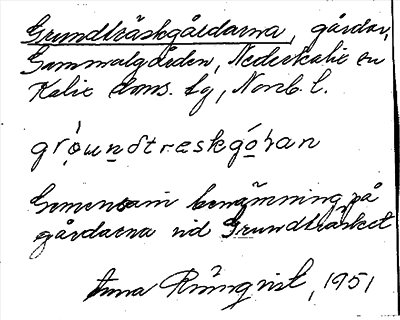 Grundträskgårdarna, gårdar,
Gammalgården, Nederkalix en
Kalix landsf. by, Norrb. l.
grọundtræskgọ́ɽan
Gemensam benämning på
gårdarna vid Grundträsket
Anna Rönqvist, 1951